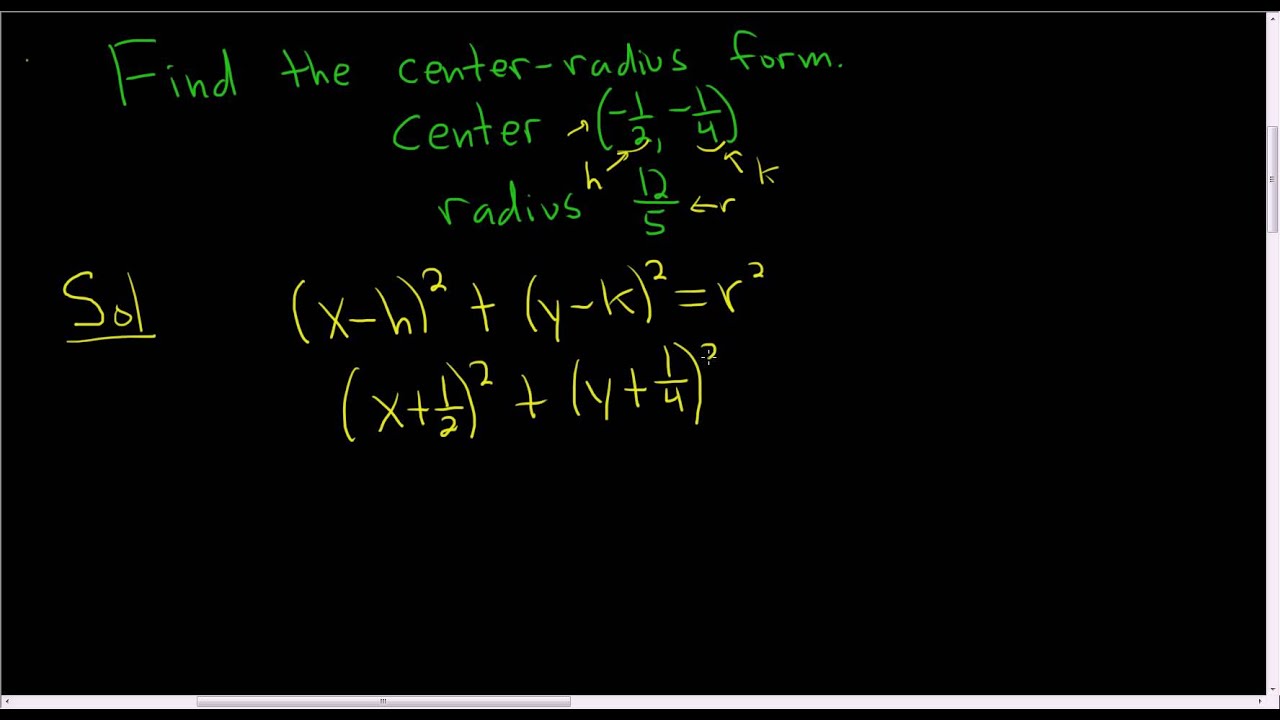 Find the center-radius form.
Center → (-1/2, -1/4)
h k
radius 12/5 ← r
Sol (x-h)² + (y-k)² = r²
(x+1/2)² + (y+1/4)²